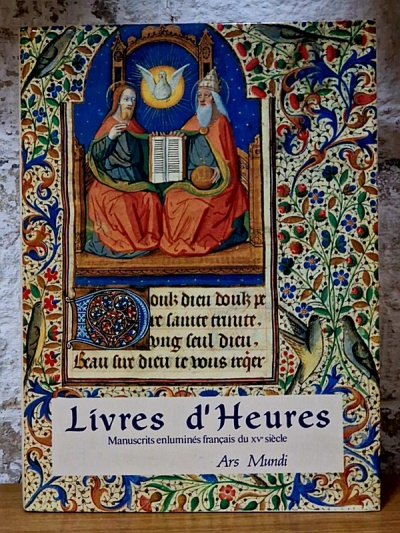 Doulz dieu doulz pe
re sainte trinite,
vng seul dieu
Beau sire dieu ie vous reqer
Livres d'Heures
Manuscrits enluminés français du XVᵉ siècle
Ars Mundi